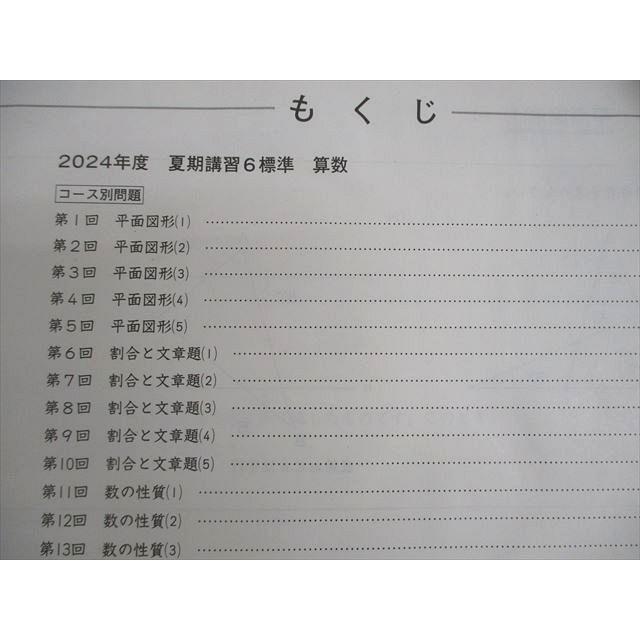 もくじ
2024年度　夏期講習6標準　算数
コース別問題
第1回　平面図形(1)
第2回　平面図形(2)
第3回　平面図形(3)
第4回　平面図形(4)
第5回　平面図形(5)
第6回　割合と文章題(1)
第7回　割合と文章題(2)
第8回　割合と文章題(3)
第9回　割合と文章題(4)
第10回　割合と文章題(5)
第11回　数の性質(1)
第12回　数の性質(2)
第13回　数の性質(3)